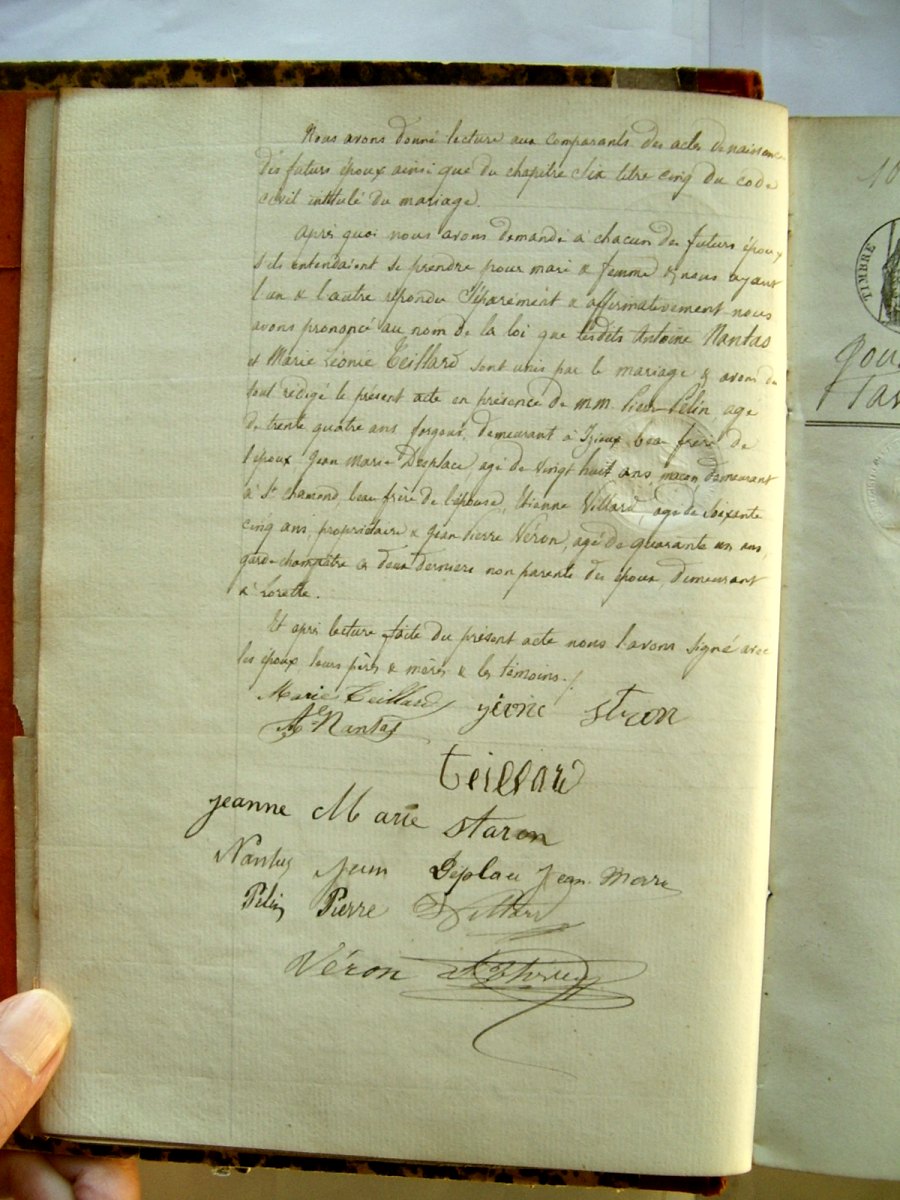 Nous avons donné lecture aux comparants des actes de naissance
des futurs époux ainsi que du chapitre six titre cinq du code
civil intitulé du mariage.
Après quoi nous avons demandé à chacun des futurs époux
s'ils entendaient se prendre pour mari & femme & nous ayant
l'un & l'autre répondu séparément & affirmativement nous
avons prononcé au nom de la loi que lesdits Antoine Nantas
et Marie Léonie Teillard sont unis par le mariage & avons du
tout rédigé le présent acte en présence de mm. Pierre Pélin, agé
de trente quatre ans forgeur, demeurant à Izieux beau frère de
l'époux Jean Marie Desplace, agé de vingt huit ans, maçon demeurant
à St chamond, beau frère de l'épouse, Etienne Villard, agé de soixante
cinq ans, propriétaire & Jean Pierre Véron, agé de quarante un ans,
garde champêtre ces deux derniers non parents des époux, demeurant
à Lorette.
Et après lecture faite du présent acte nous l'avons signé avec
les époux, leurs pères & mères & les témoins./.
Marie Teillard
Ae Nantas
staron
teillard
jeanne Marie staron
Nantas Jean Déplace Jean Marie
Pélin Pierre Villard
Véron
10
TIMBRE